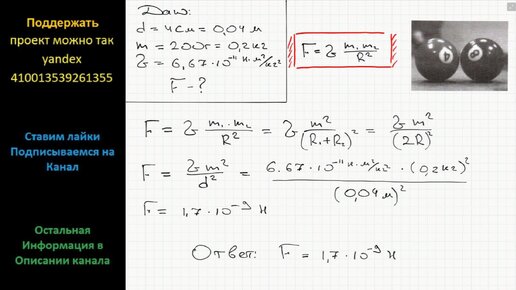 Поддержать
проект можно так
yandex
410013539261355
Ставим лайки
Подписываемся на
Канал
Остальная
Информация в
Описании канала
Дано:
d = 4см = 0,04 м
m = 200г = 0,2 кг
G = 6,67·10⁻¹¹ Н·м²/кг²
F - ?
F = G m₁m₂/R²
F = G m₁·m₂/R² = G m²/(R₁+R₂)² = G m²/(2R)²
F = Gm²/d² = 6.67·10⁻¹¹ Н·м²/кг² · (0,2кг)²/(0,04м)²
F = 1,7·10⁻⁹ Н
Ответ: F = 1,7·10⁻⁹ Н